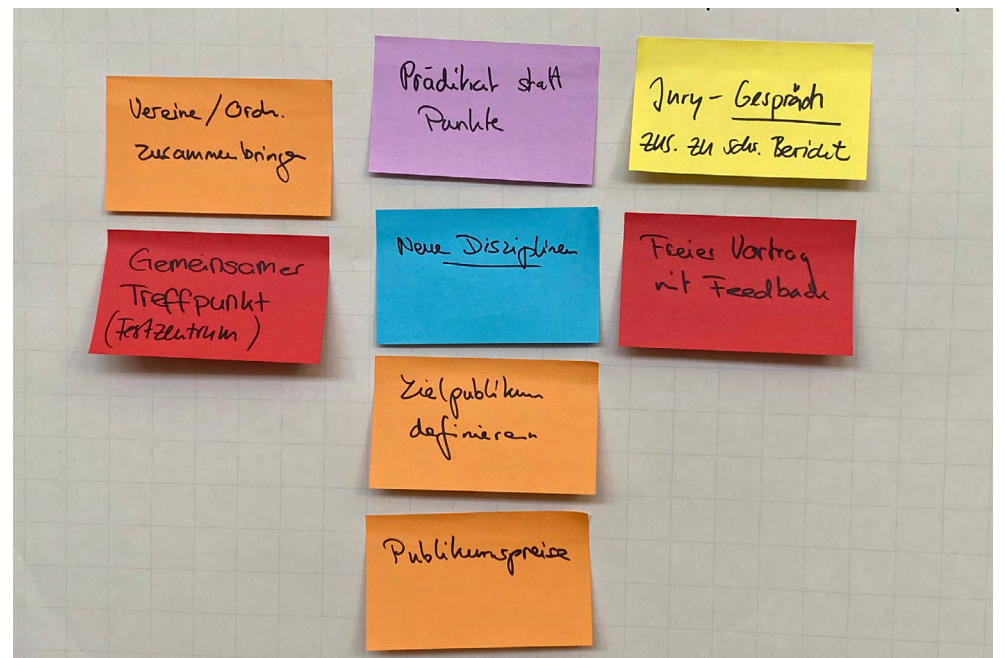 Vereine / Orch.
zusammenbringen
Gemeinsamer
Treffpunkt
(Festzentrum)
Prädikat statt
Punkte
Neue Disziplinen
Zielpublikum
definieren
Publikumspreise
Jury - Gespräch
zus. zu schr. Bericht
Freier Vortrag
mit Feedback